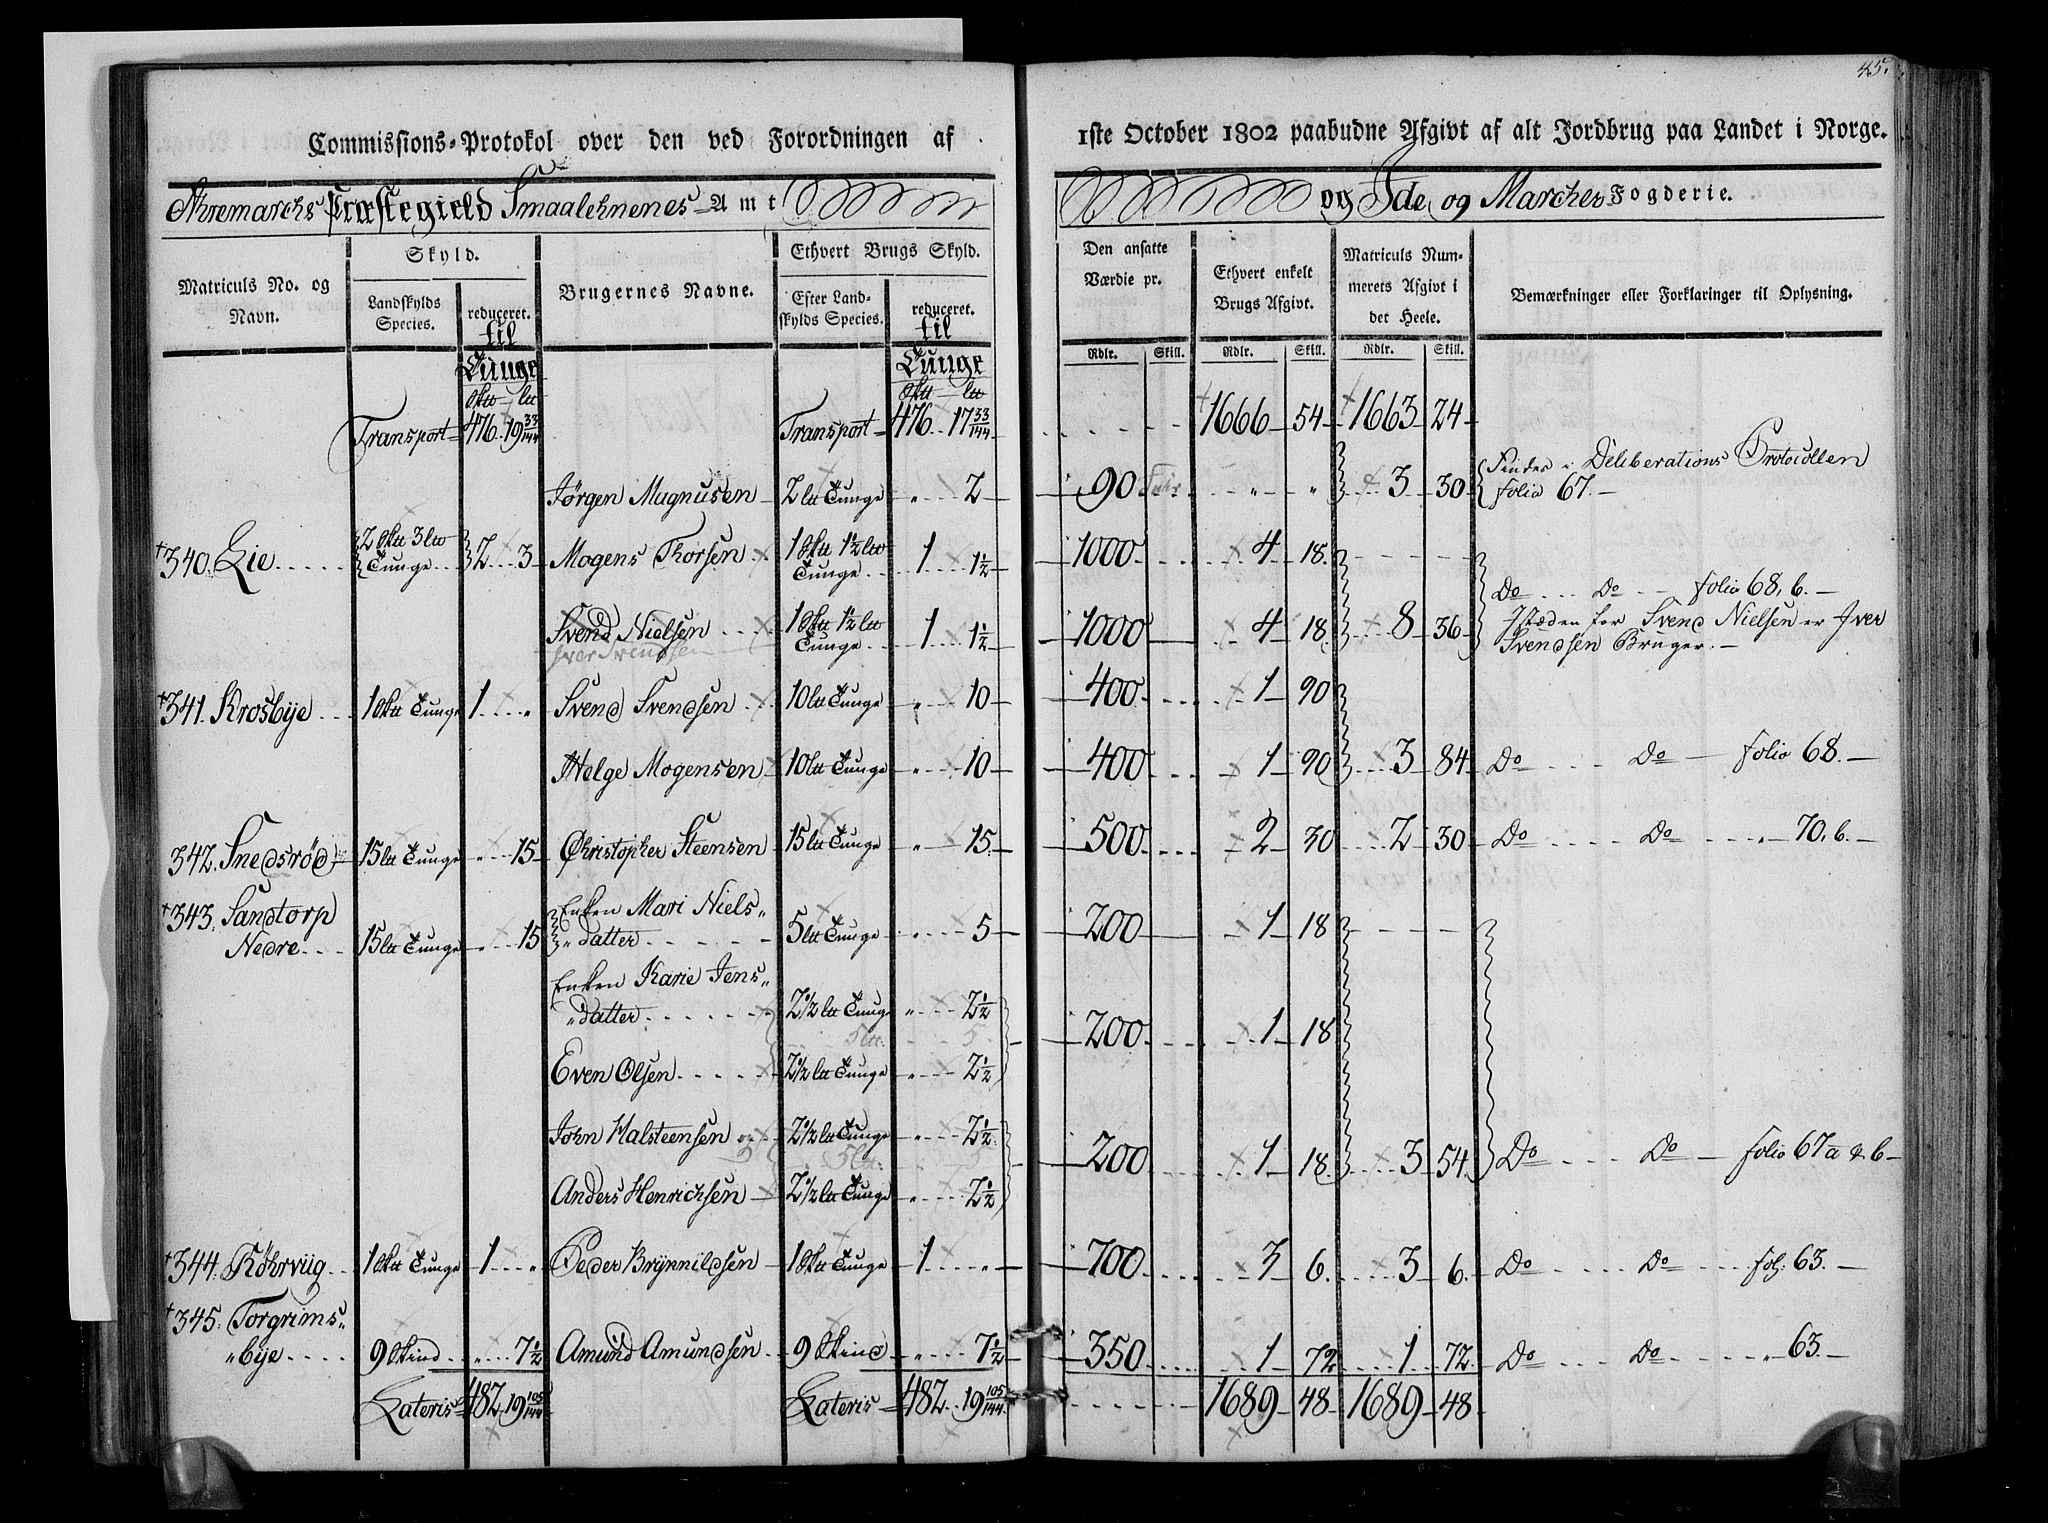 45.
Commissions-Protokol over den ved Forordningen af
1ste October 1802 paabudne Afgivt af alt Jordbrug paa Landet i Norge.
Ahremarchs Præstegield Smaalehnenes Amt
og Ide og Marcher Fogderie.
Matriculs No. og Navn. | Skyld. | Brugernes Navne. | Ethvert Brugs Skyld. | Den ansatte Værdie pr. | Ethvert enkelt Brugs Afgivt. | Matriculs Nummerets Afgivt i det Heele. | Bemærkninger eller Forklaringer til Oplysning.
Landskylds Species. | reduceret. til Tunge | Efter Landskylds Species. | reduceret. til Tunge | Rdlr. | Skill. | Rdlr. | Skill. | Rdlr. | Skill.
Transport 476 19 33/144 | Transport 476 17 33/144 | 1666 54 | 1663 24
Jørgen Magnusen | 2 ltt Tunge | " 2 | 90 | " " | 3 30 | Findes i Deliberations Protocollen folio 67.
340. Lie | 2 Sktt 3 ltt Tunge | 2 3 | Mogens Thorsen | 1 Sktt 1½ ltt Tunge | 1 1½ | 1000 | 4 18
Svend Nielsen | 1 Sktt 1½ ltt Tunge | 1 1½ | 1000 | 4 18 | 8 36 | Do Do folio 68, b.
Iver Svendsen | I Stæden for Svend Nielsen er Iver Svendsen Bruger.
341. Krosbye | 1 Sktt Tunge | 1 " | Svend Svendsen | 10 ltt Tunge | " 10 | 400 | 1 90
Helge Mogensen | 10 ltt Tunge | " 10 | 400 | 1 90 | 3 84 | Do Do folio 68.
342. Snedsrød | 15 ltt Tunge | " 15 | Christopher Steensen | 15 ltt Tunge | " 15 | 500 | 2 30 | 2 30 | Do Do " 70, b.
343. Sandtorp Nedre | 15 ltt Tunge | " 15 | Enken Mari Niels"
"datter | 5 ltt Tunge | " 5 | 200 | 1 18
Enken Karie Jens"
"datter | 2½ ltt Tunge | " 2½ | 200 | 1 18
5 ltt: 5
Even Olsen | 2½ ltt Tunge | " 2½
John Halsteensen | 2½ ltt Tunge | " 2½
5 ltt: 5 | 200 | 1 18 | 3 54 | Do Do folio 67 a & b
Anders Henrichsen | 2½ ltt Tunge | " 2½
344. Köhrviig | 1 Sktt Tunge | 1 " | Peder Brynnildsen | 1 Sktt Tunge | 1 " | 700 | 3 6 | 3 6 | Do Do fol: 63.
345. Torgrims"
"bye | 9 Skind | " 7½ | Amund Amundsen | 9 Skind | " 7½ | 350 | 1 72 | 1 72 | Do Do " 63.
Lateris 482 19 105/144 | Lateris 482 19 105/144 | 1689 48 | 1689 48